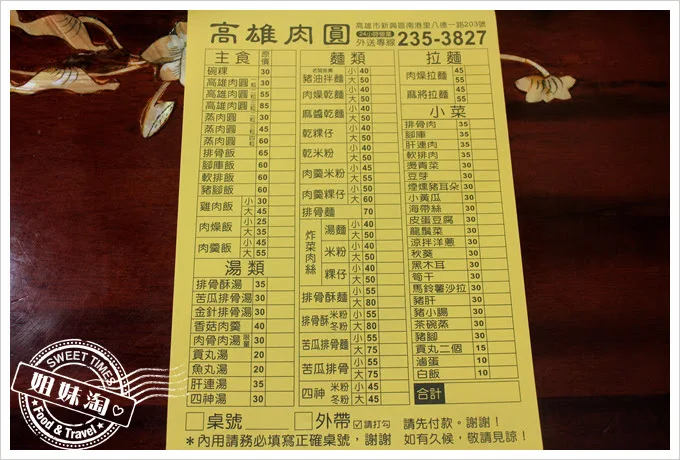 高雄肉圓
高雄市新興區南港里八德一路203號
24小時營業
外送專線 235-3827
主食 原價
碗粿 30
高雄肉圓 30
高雄肉圓 55
高雄肉圓 85
蒸肉圓 30
蒸肉圓 45
蒸肉圓 60
排骨飯 65
腳庫飯 60
軟排飯 60
豬腳飯 60
雞肉飯 小 30
大 45
肉燥飯 小 25
大 35
肉羹飯 小 45
大 55
湯類
排骨酥湯 35
苦瓜排骨湯 30
金針排骨湯 30
香菇肉羹 40
肉骨肉湯 30
貢丸湯 20
魚丸湯 20
肝連湯 35
四神湯 30
麵類
豬油拌麵 小 40
大 50
肉燥乾麵 小 40
大 50
麻醬乾麵 小 40
大 50
乾粿仔 小 40
大 50
乾米粉 小 40
大 50
肉羹米粉 小 45
大 55
肉羹粿仔 小 50
大 60
排骨麵 70
炸菜肉絲 湯麵 小 40
大 50
米粉 小 40
大 50
粿仔 小 40
大 50
排骨酥麵 小 55
大 80
排骨酥 米粉 冬粉 小 55
大 80
苦瓜排骨麵 小 55
大 75
苦瓜排骨 米粉 冬粉 小 55
大 75
四神 米粉 冬粉 小 45
大 45
拉麵
肉燥拉麵 45
55
麻將拉麵 45
55
小菜
排骨肉 35
腳庫 35
肝連肉 35
軟排肉 35
燙青菜 30
豆芽 30
煙燻豬耳朵 30
小黃瓜 30
海帶絲 30
皮蛋豆腐 30
龍鬚菜 30
涼拌洋蔥 30
秋葵 30
黑木耳 30
筍干 30
馬鈴薯沙拉 30
豬肝 30
豬小腸 30
茶碗蒸 30
豬腳 30
貢丸二個 15
滷蛋 10
白飯 10
合計
桌號 外帶 ☑請打勾 請先付款。謝謝！
＊內用請務必填寫正確桌號，謝謝 如有久候，敬請見諒！
SWEET TIMES
姐妹淘
Food & Travel